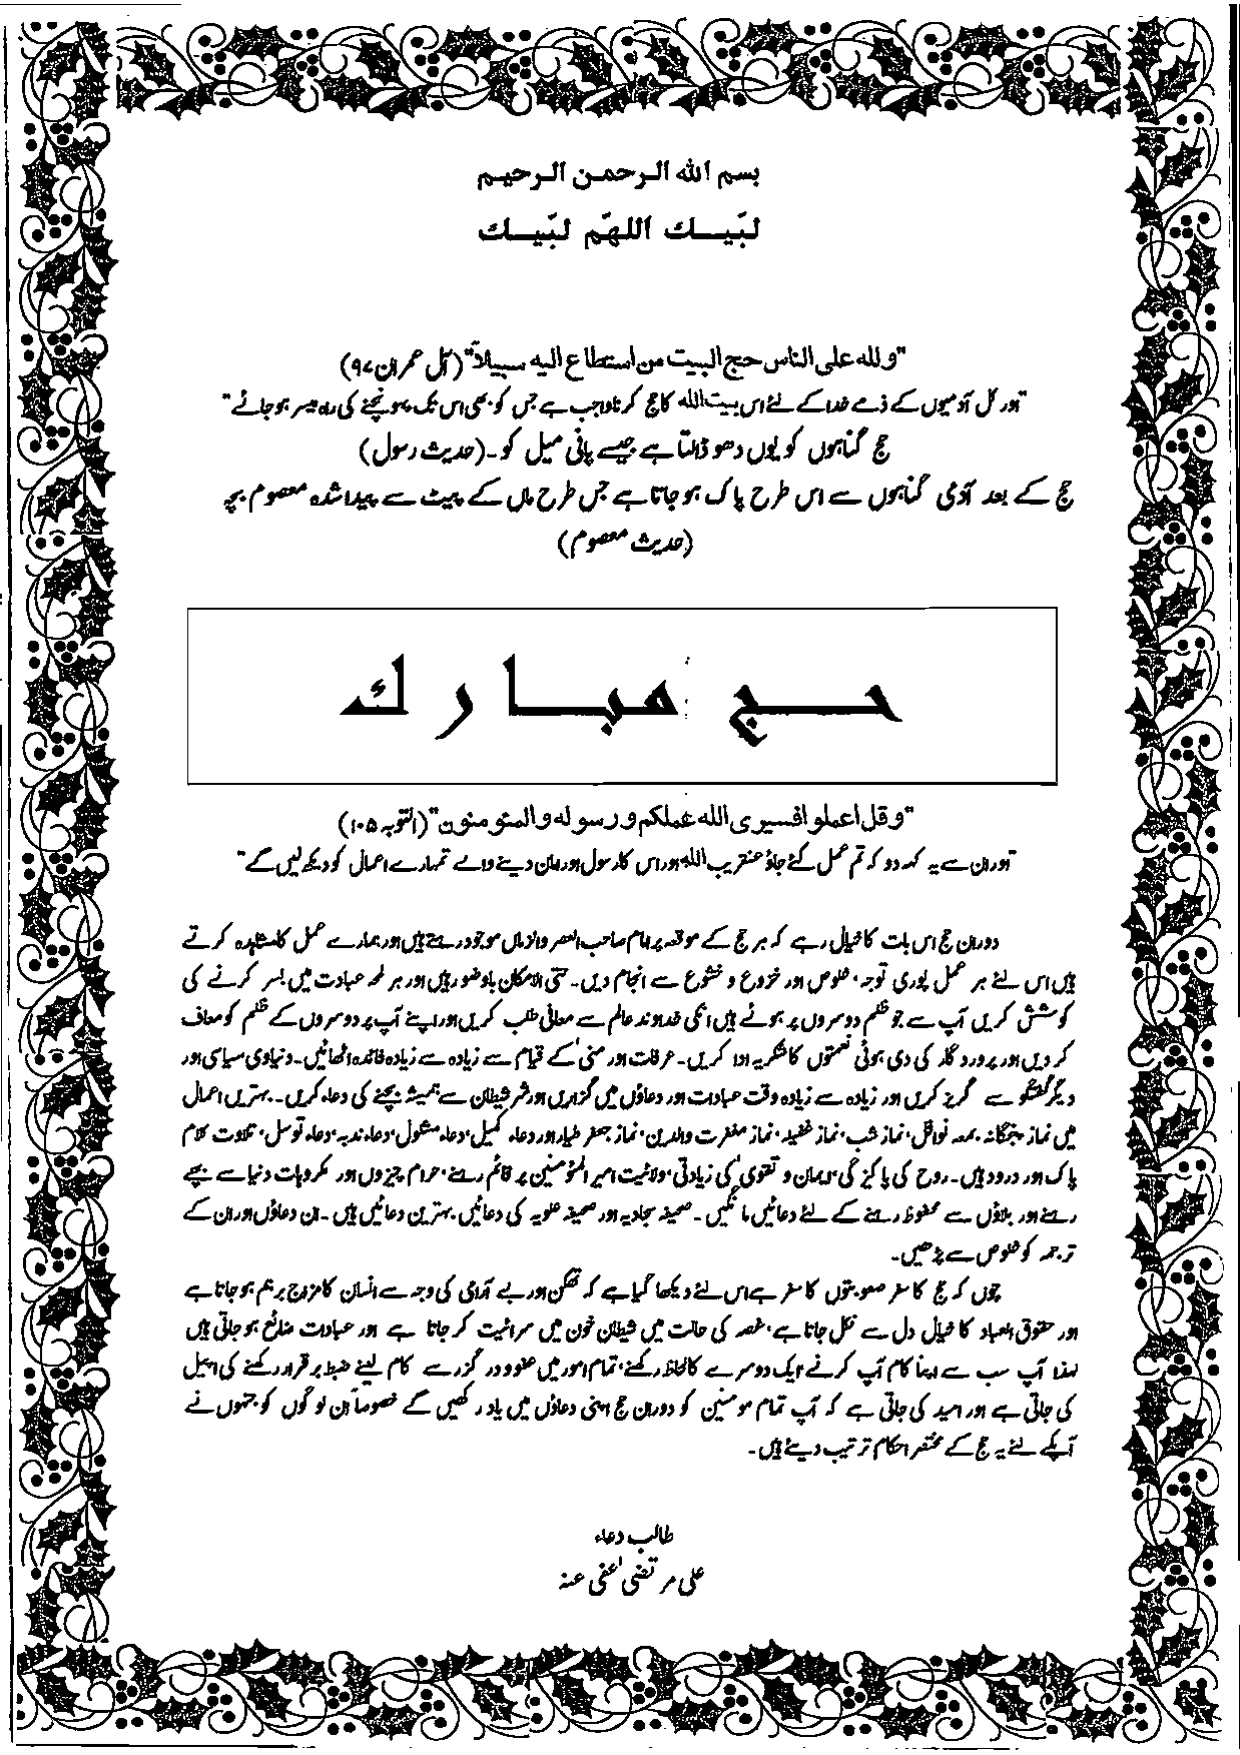 بسم الله الرحمن الرحيم
لبّيك اللهمّ لبّيك
"ولله على الناس حج البيت من استطاع اليه سبيلاً" (آل عمران ۹۷)
"اور کل آدمیوں کے ذمے خدا کے لئے اس بیت اللہ کا حج کرنا واجب ہے جس کو بھی اس تک پہونچنے کی راہ میسر ہو جائے"
حج گناہوں کو یوں دھو ڈالتا ہے جیسے پانی میل کو۔ (حدیث رسول)
حج کے بعد آدمی گناہوں سے اس طرح پاک ہو جاتا ہے جس طرح ماں کے پیٹ سے پیدا شدہ معصوم بچہ
(حدیث معصوم)
حج مبارك
"وقل اعملو افسيرى الله عملكم ورسوله والمئومنون" (التوبہ ۱۰۵)
"اور ان سے یہ کہہ دو کہ تم عمل کئے جاؤ عنقریب اللہ اور اس کا رسول اور ایمان دینے والے تمہارے اعمال کو دیکھ لیں گے"
دوران حج اس بات کا خیال رہے کہ ہر حج کے موقعہ پر امام صاحب العصر والزماں موجود رہتے ہیں اور ہمارے عمل کا مشاہدہ کرتے
ہیں اس لئے ہر عمل پوری توجہ، خلوص اور خزوع و خشوع سے انجام دیں۔ حتی الامکان باوضو رہیں اور ہر لمحہ عبادت میں بسر کرنے کی
کوشش کریں آپ سے جو ظلم دوسروں پر ہوئے ہیں انکی خداوند عالم سے معافی طلب کریں اور اپنے آپ پر دوسروں کے ظلم کو معاف
کر دیں اور پرورد گار کی دی ہوئی نعمتوں کا شکریہ ادا کریں۔ عرفات اور منیٰ کے قیام سے زیادہ سے زیادہ فائدہ اٹھائیں۔ دنیاوی سیاسی اور
دیگر گفتگو سے گریز کریں اور زیادہ سے زیادہ وقت عبادات اور دعاؤں میں گزاریں اور شر شیطان سے ہمیشہ بچنے کی دعاء کریں۔ بہترین اعمال
میں نماز پنجگانہ بمعہ نوافل، نماز شب، نماز غفیلہ، نماز مغفرت والدین، نماز جعفر طیار اور دعاء کمیل، دعاء مشلول، دعاء ندبہ، دعاء توسل، تلاوت کلام
پاک اور درود ہیں۔ روح کی پاکیزگی، ایمان و تقویٰ کی زیادتی، ولائیت امیر المؤمنین پر قائم رہنے، حرام چیزوں اور مکروہات دنیا سے بچے
رہنے اور بلاؤں سے محفوظ رہنے کے لئے دعائیں مانگیں۔ صحیفہ سجادیہ اور صحیفہ علویہ کی دعائیں بہترین دعائیں ہیں۔ ان دعاؤں اور ان کے
ترجمہ کو خلوص سے پڑھیں۔
چوں کہ حج کا سفر صعوبتوں کا سفر ہے اس لئے دیکھا گیا ہے کہ تھکن اور بے آرامی کی وجہ سے انسان کا مزاج برہم ہو جاتا ہے
اور حقوق العباد کا خیال دل سے نکل جاتا ہے، غصہ کی حالت میں شیطان خون میں سرائیت کر جاتا ہے اور عبادات ضائع ہو جاتی ہیں
لہذا آپ سب سے اپنا کام آپ کرنے، ایک دوسرے کا لحاظ رکھنے، تمام امور میں عفو و در گزر سے کام لینے ضبط برقرار رکھنے کی اپیل
کی جاتی ہے اور امید کی جاتی ہے کہ آپ تمام مومنین کو دوران حج اپنی دعاؤں میں یاد رکھیں گے خصوصاً ان لوگوں کو جنہوں نے
آپکے لئے یہ حج کے مختصر احکام ترتیب دیئے ہیں۔
طالب دعاء
علی مرتضیٰ عفی عنہ